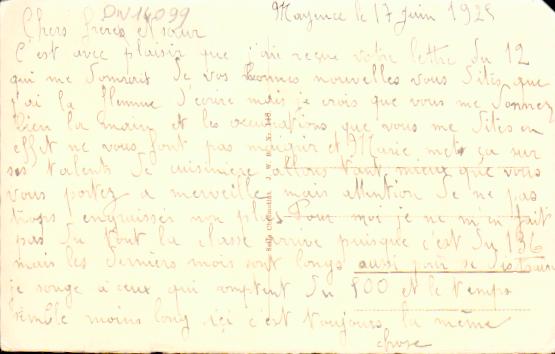 DN 14099
Mayence le 17 juin 1925
Chers frères et sœur
C'est avec plaisir que j'ai reçue votre lettre du 12
qui me donnait de vos bonnes nouvelles vous dites que
j'ai la flemme d'écrire mais je crois que vous me donnez
bien la main et les occupations que vous me dites en
effet ne vous font pas maigrir et Marie met ça sur
ses talents de cuisinière allons tant mieux que vous
vous portez a merveille mais attention de ne pas
trop engraisser non plus Pour moi je ne m'en fait
pas du tout la classe arrive puisque c'est du 136
mais les derniers mois sont longs aussi
je songe a ceux qui comptent du 500 et le temps
semble moins long ici c'est toujours la même
chose